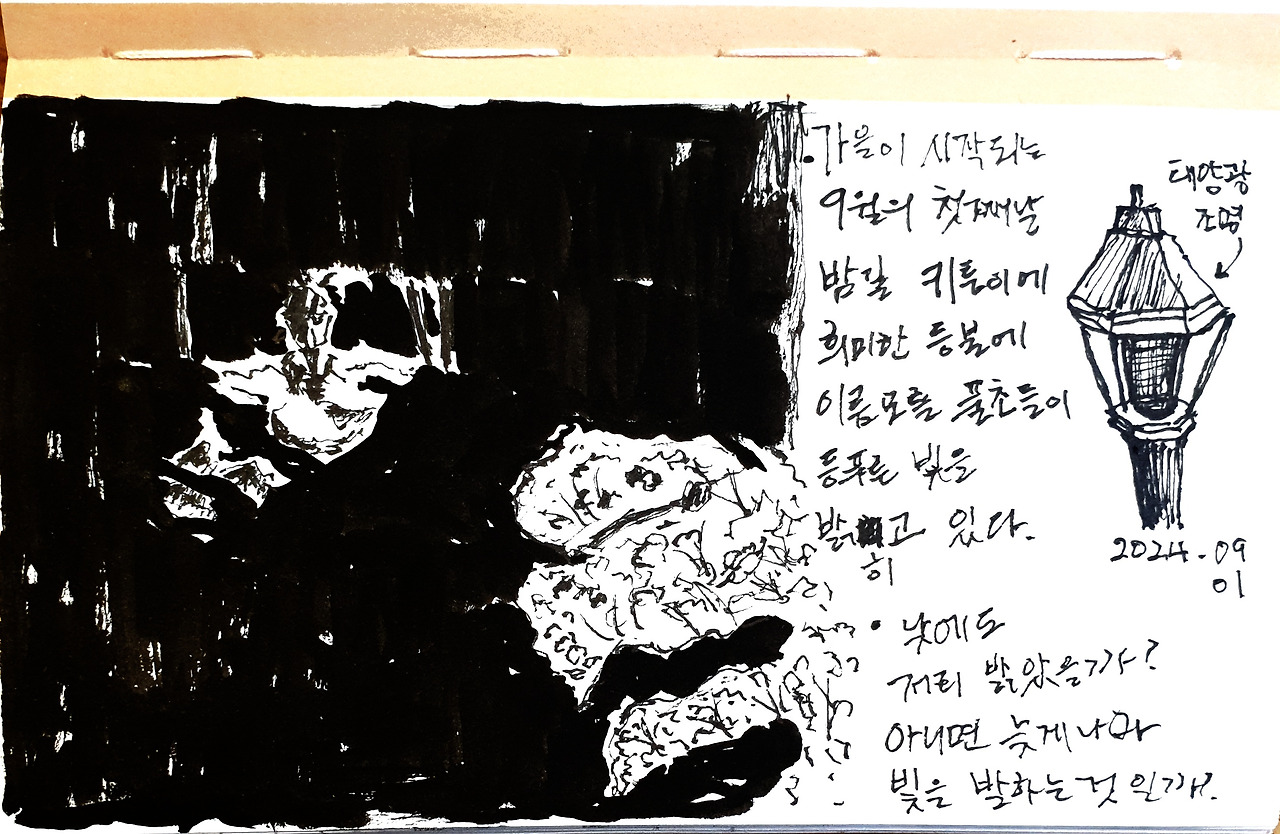 ·가을이 시작되는
9월의 첫째날
밤길 귀퉁이에
희미한 등불에
이름모를 풀초들이
등푸른 빛을
밝고 있다.
히
태양광
조명
2024.09
01
· 낮에도
저리 밝았을까?
아니면 늦게나마
빛을 발하는것 일까?